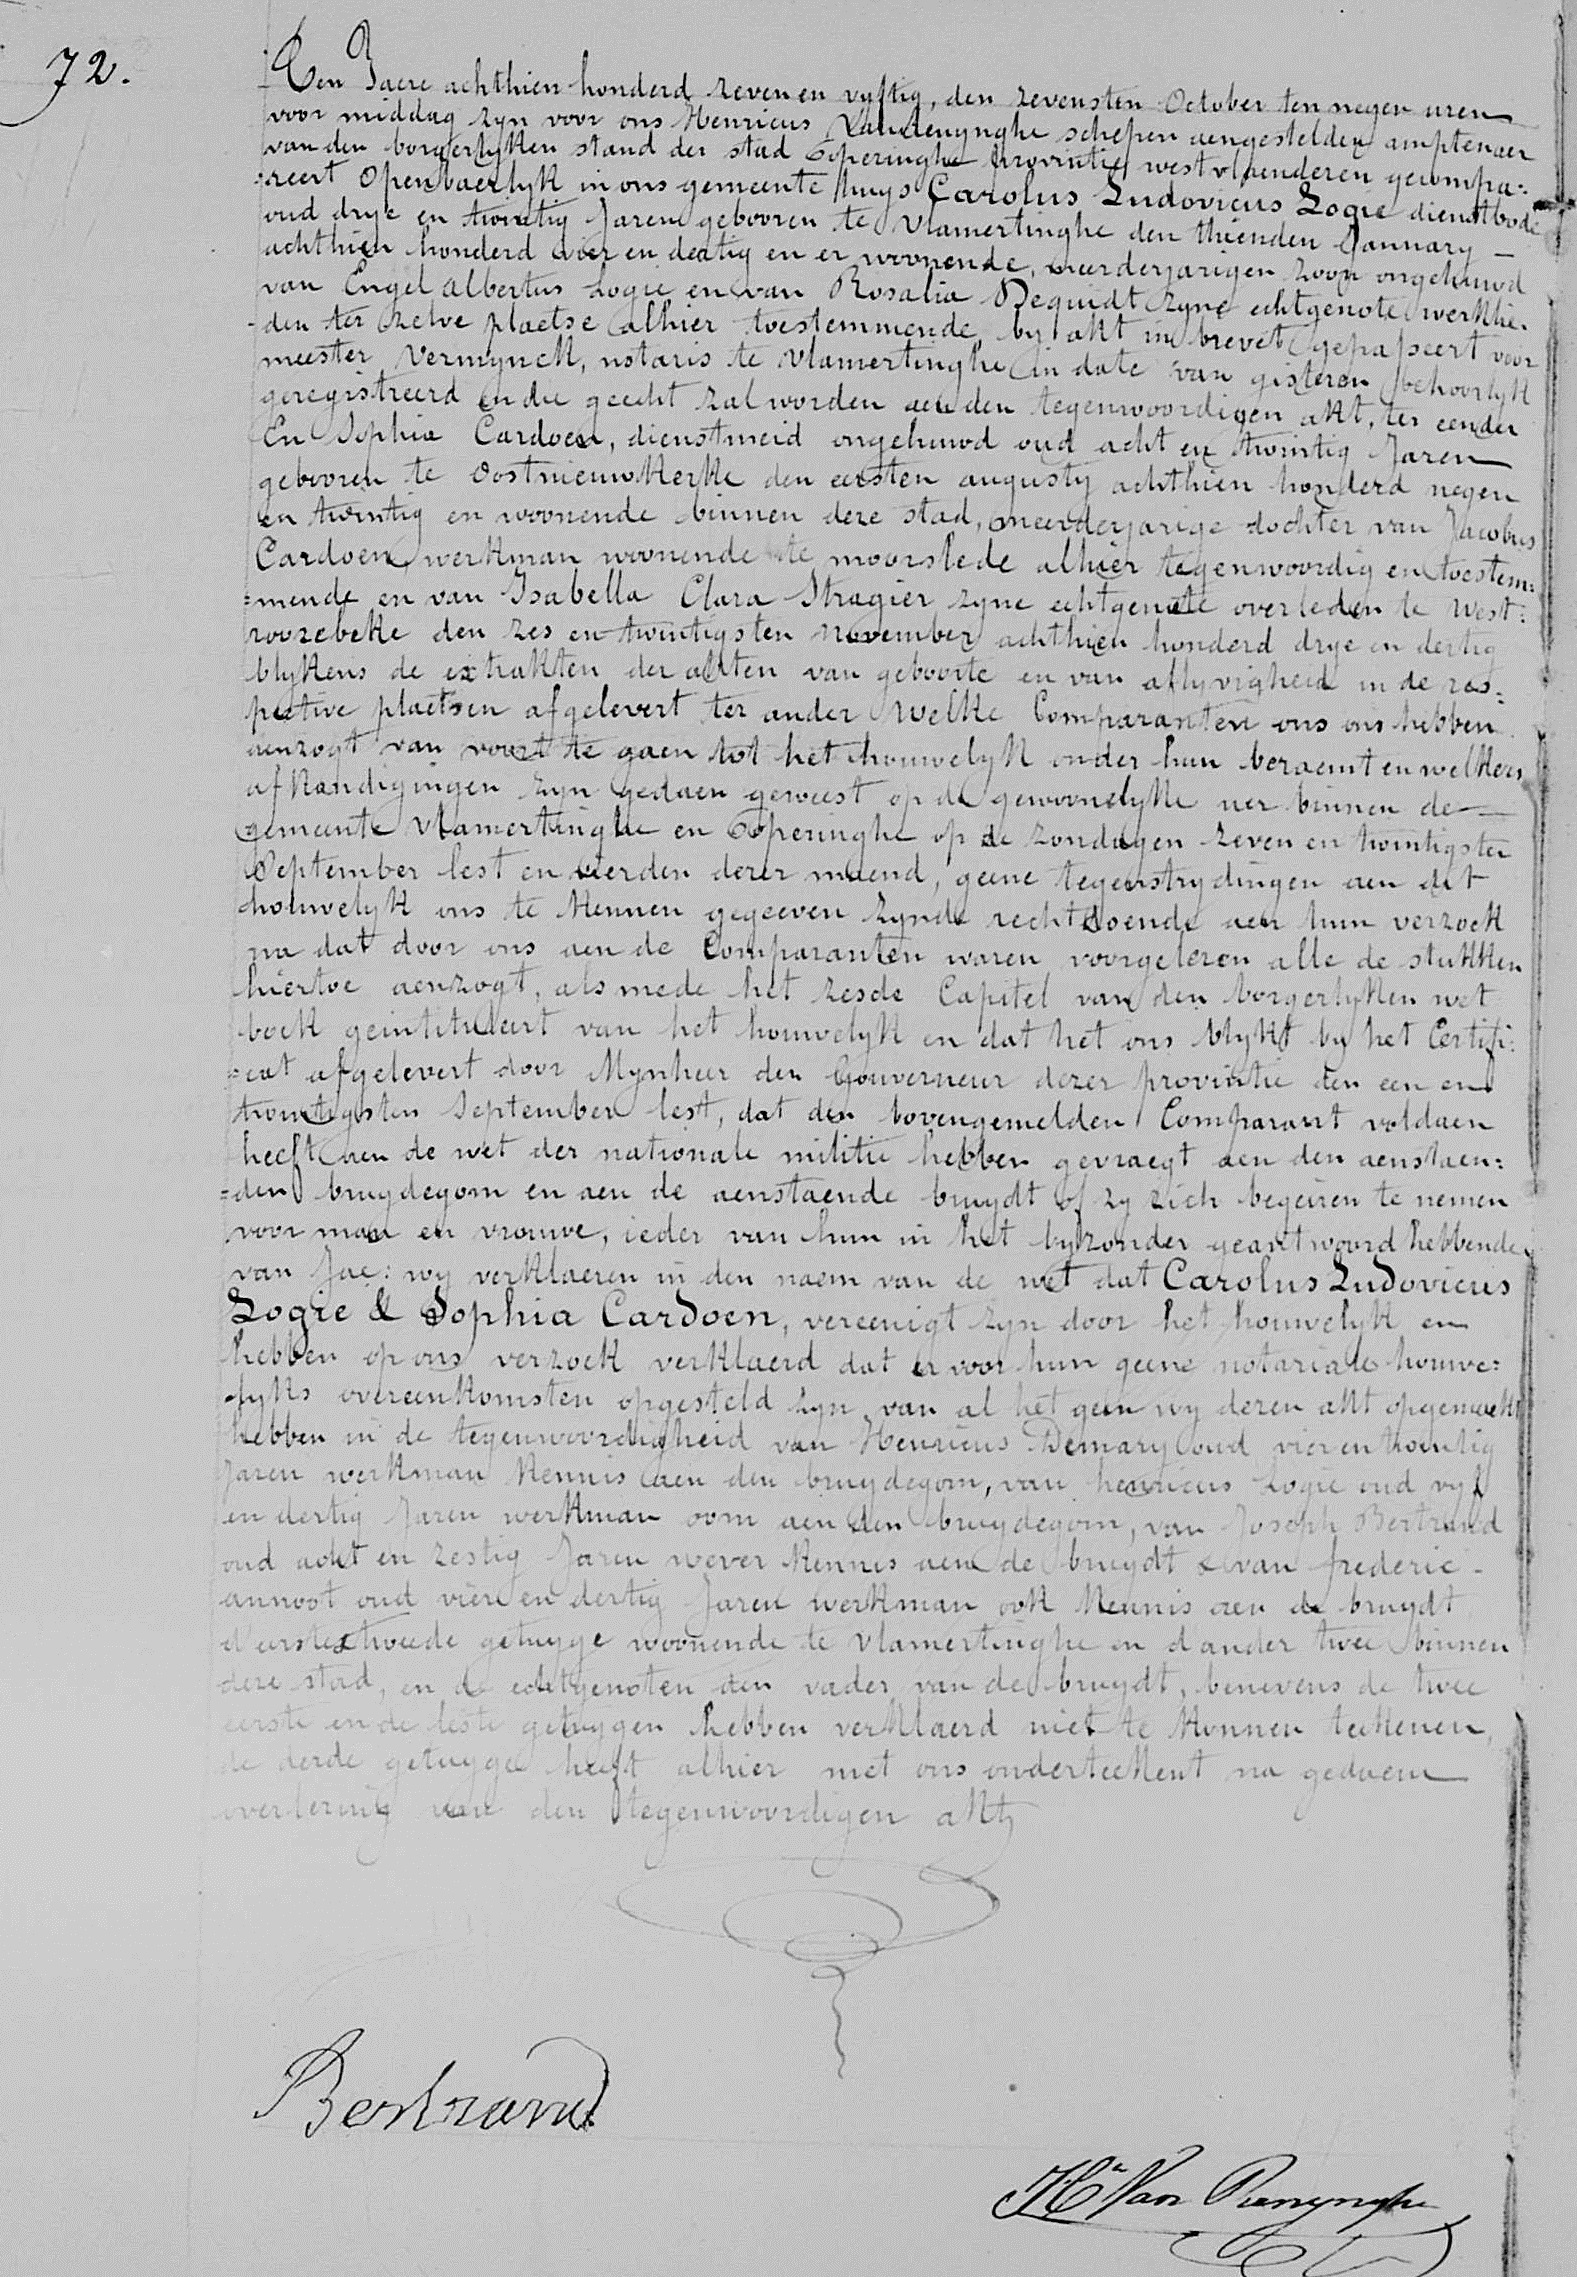 72.
Ten Jaere achthien honderd zeven en vyftig, den zevensten October ten negen uren
voor middag zyn voor ons Henricus Vanrenynghe schepen aengestelden amptenaer
van den borgerlyken stand der stad Poperinghe provintie westvlaenderen gecompa:
:reert Openbaerlyk in ons gemeente huys Carolus Ludovicus Logie dienstbode
oud drye en twintig Jaren gebooren te Vlamertinghe den thienden January –
achthien honderd vier en dertig en er woonende, meerderjarigen zoon ongehuwd
van Engel Albertus Logie en van Rosalia Dequidt zyne echtgenote werklie-
-den ter zelve plaetse alhier toestemmende by akt in brevet gepasseert voor
meester Vermynck, notaris te Vlamertinghe in date van gisteren behoorlyk
geregistreerd en die geecht zal worden aen den tegenwoordigen akt, ter eender
En Sophia Cardoen, dienstmeid ongehuwd oud acht en twintig Jaren
gebooren te Oostnieuwkerke den eersten augusty achthien honderd negen
en twintig en woonende binnen deze stad, meerderjarige dochter van Jacobus
Cardoen werkman woonende te moorslede alhier tegenwoordig en toestem:
:mende en van Isabella Clara Stragier zyne echtgenote overleden te West:
roozebeke den zes en twintigsten November achthien honderd drye en dertig
blykens de extrakten der akten van geboorte en van aflyvigheid in de res:
pective plaetsen afgelevert ter ander Welke Comparanten ons ons hebben
aenzogt van voort te gaen tot het houwelyk onder hun beraemt en welkers
afkondigingen zyn gedaen geweest op de gewoonelyke uer binnen de
gemeente Vlamertinghe en Poperinghe op de zondagen zeven en twintigsten
September lest en vierden dezer maend, geene tegenstrydingen aen dit
houwelyk ons te kennen gegeeven zynde rechtdoende aen hun verzoek
na dat door ons aen de Comparanten waren voorgelezen alle de stukken
hiertoe aenzogt, als mede het zesde Capitel van den borgerlyken wet
boek geintituleert van het houwelyk en dat het ons blykt by het Certifi:
:cat afgelevert door Mynheer den Gouverneur dezer provintie den een en
twintigsten September lest, dat den bovengemelden Comparant voldaen
heeft aen de wet der nationale militie hebben gevraegt aen den aenstaen:
:den bruydegom en aen de aenstaende bruydt of zy zich begeiren te nemen
voor man en vrouwe, ieder van hun in het byzonder geantwoord hebbende
van Jae: wy verklaeren in den naem van de wet dat Carolus Ludovicus
Logie & Sophia Cardoen, vereenigt zyn door het houwelyk en
hebben op ons verzoek verklaerd dat er voor hun geene notariale houwe:
-lyks overeenkomsten opgesteld zyn van al het geen wy dezen akt opgemaekt
hebben in de tegenwoordigheid van Henricus Demary oud vier en twintig
Jaren werkman kennis aen den bruydegom, van henricus Logie oud vyf
en dertig Jaren werkman oom aen den bruydegom, van Joseph Bertrand
oud acht en zestig Jaren wever kennis aen de bruydt & van frederic -
annoot oud vier en dertig Jaren werkman ook kennis aen de bruydt
d'eerste & tweede getuyge woonende te Vlamertinghe en d'ander twee binnen
deze stad, en de echtgenoten den vader van de bruydt, benevens de twee
eerste en de leste getuygen hebben verklaerd niet te konnen teekenen,
de derde getuyge heeft alhier met ons onderteekent na gedaene
overlezing van den tegenwoordigen akt
Bertrand
Hri Van Renynghe